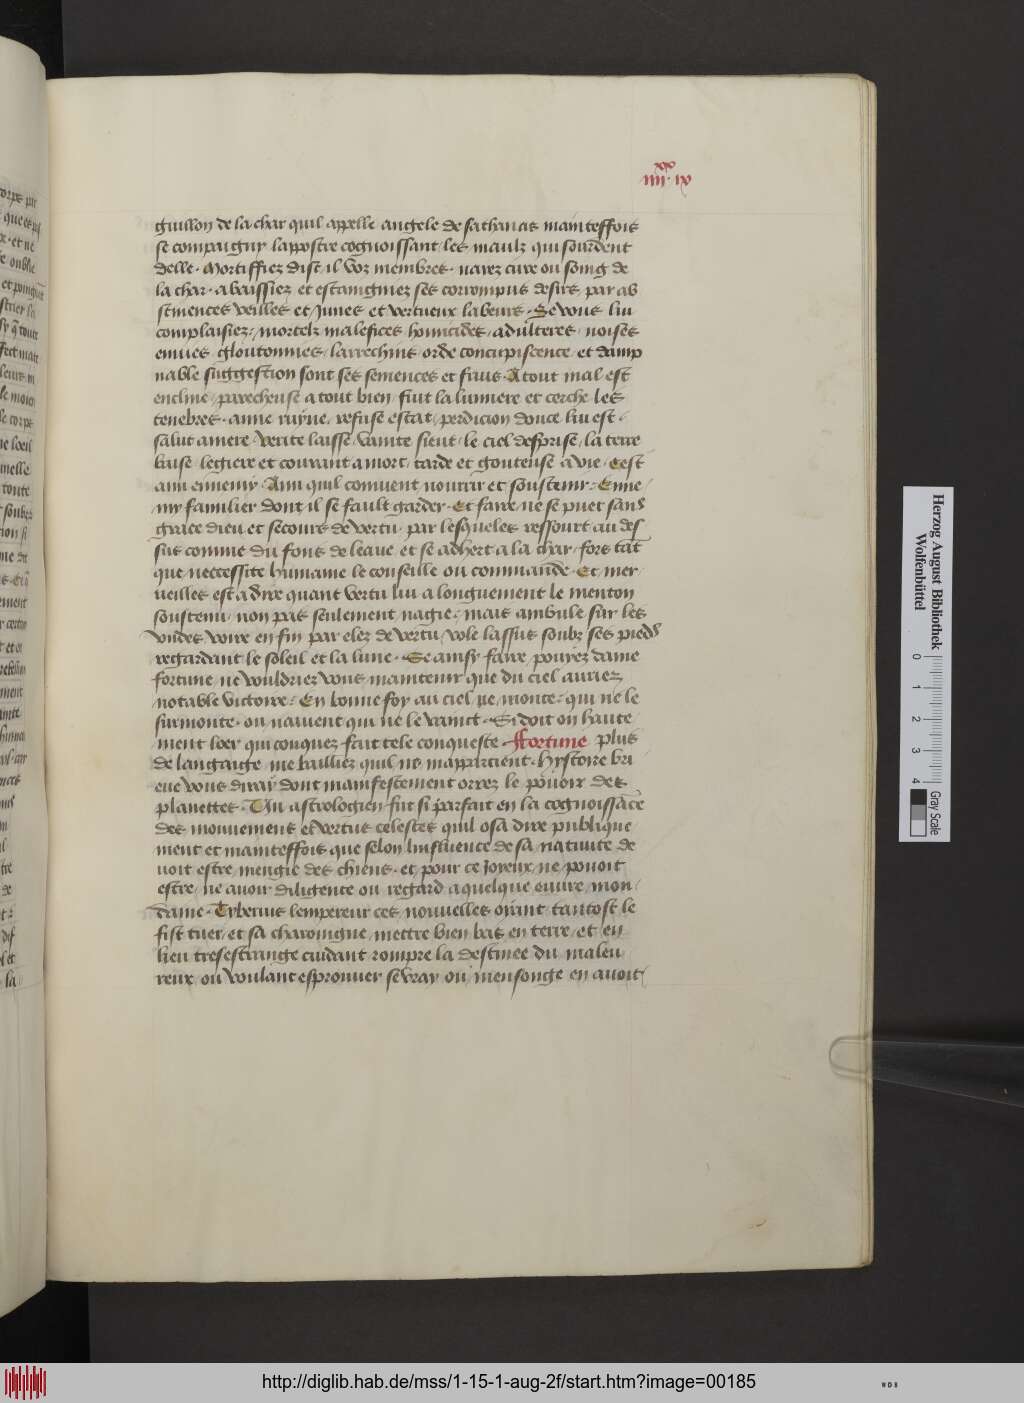 xx
iiii · ix
guillon de la char quil appelle angele de sathanas mainteffois
se compaignx lappostre cognoissant les maulx qui sourdent
delle · Mortiffiez dist il voz membres · naiez cure ou soing de
la char · abaissiez et estaingniez ses corrompus desirs par abs
stinences veilles et Junes et vertueux labeurs · Se vous lui
complaisiez / mortelz malefices homicides · adulteres · noises
enuies gloutonnies / larrechins orde concupiscence et damp
nable suggestion sont ses semences et fruis · A tout mal est
encline / parecheuse a tout bien / fuit la lumiere et cerche les
tenebres · aime ruyne / refuse estat / perdicion douce lui est ·
salut amere · verite laisse / vanite sieut · le ciel desprise / la terre
baise · legiere et courant a mort · tarde et gouteuse a vie · Cest
ami ennemy · Ami quil conuient nourrir et soustenir · Enne
my familier dont il se fault garder · Et faire ne se puet sans
grace dieu et secours de vertu · par lesqueles ressourt au des
sus comme du fons de leaue et se adhert a la char · fors tāt
que neccessite humaine le conseille ou commande · Et mer
ueilles est a dire quant vertu lui a longuement le menton
soustenu · non pas seulement nagie · mais ambule sur les
vndes voire en fin par elez de vertu / vole lassus soubz ses piedz
regardant le soleil et la lune · Se ainsy faire pouyez dame
fortune ne vouldriez vous maintenir que du ciel auriez
notable victoire · En bonne foy au ciel ne monte · qui ne le
surmonte · ou nauient qui ne le vainct · Si doit on haute
ment loer qui conquez fait tele conqueste · Ffortune plus
de langaige me bailliez quil ne mappartient · hystoire bri
eue vous diray dont manifestement orrez le pouoir des
planettes · Un astrologien fut si parfait en la cognoissāce
des mouuemens et vertus celestes quil osa dire publique
ment et mainteffois que selon linfluence de sa natiuite de
uoit estre mengie des chiens · et pour ce joyeux ne pouoit
estre / ne auoir diligence ou regard a quelque euure mon
daine · Tyberius lempereur ces nouuelles oyant tantost le
fist tuer / et sa charoingne / mettre bien bas en terre / et en
lieu tresestrange cuidant rompre la destinee du maleu
reux / ou voulant esprouuer se vray ou mensonge en auoit
Herzog August Bibliothek
Wolfenbüttel
0 1 2 3 4
Gray Scale
http://diglib.hab.de/mss/1-15-1-aug-2f/start.htm?image=00185